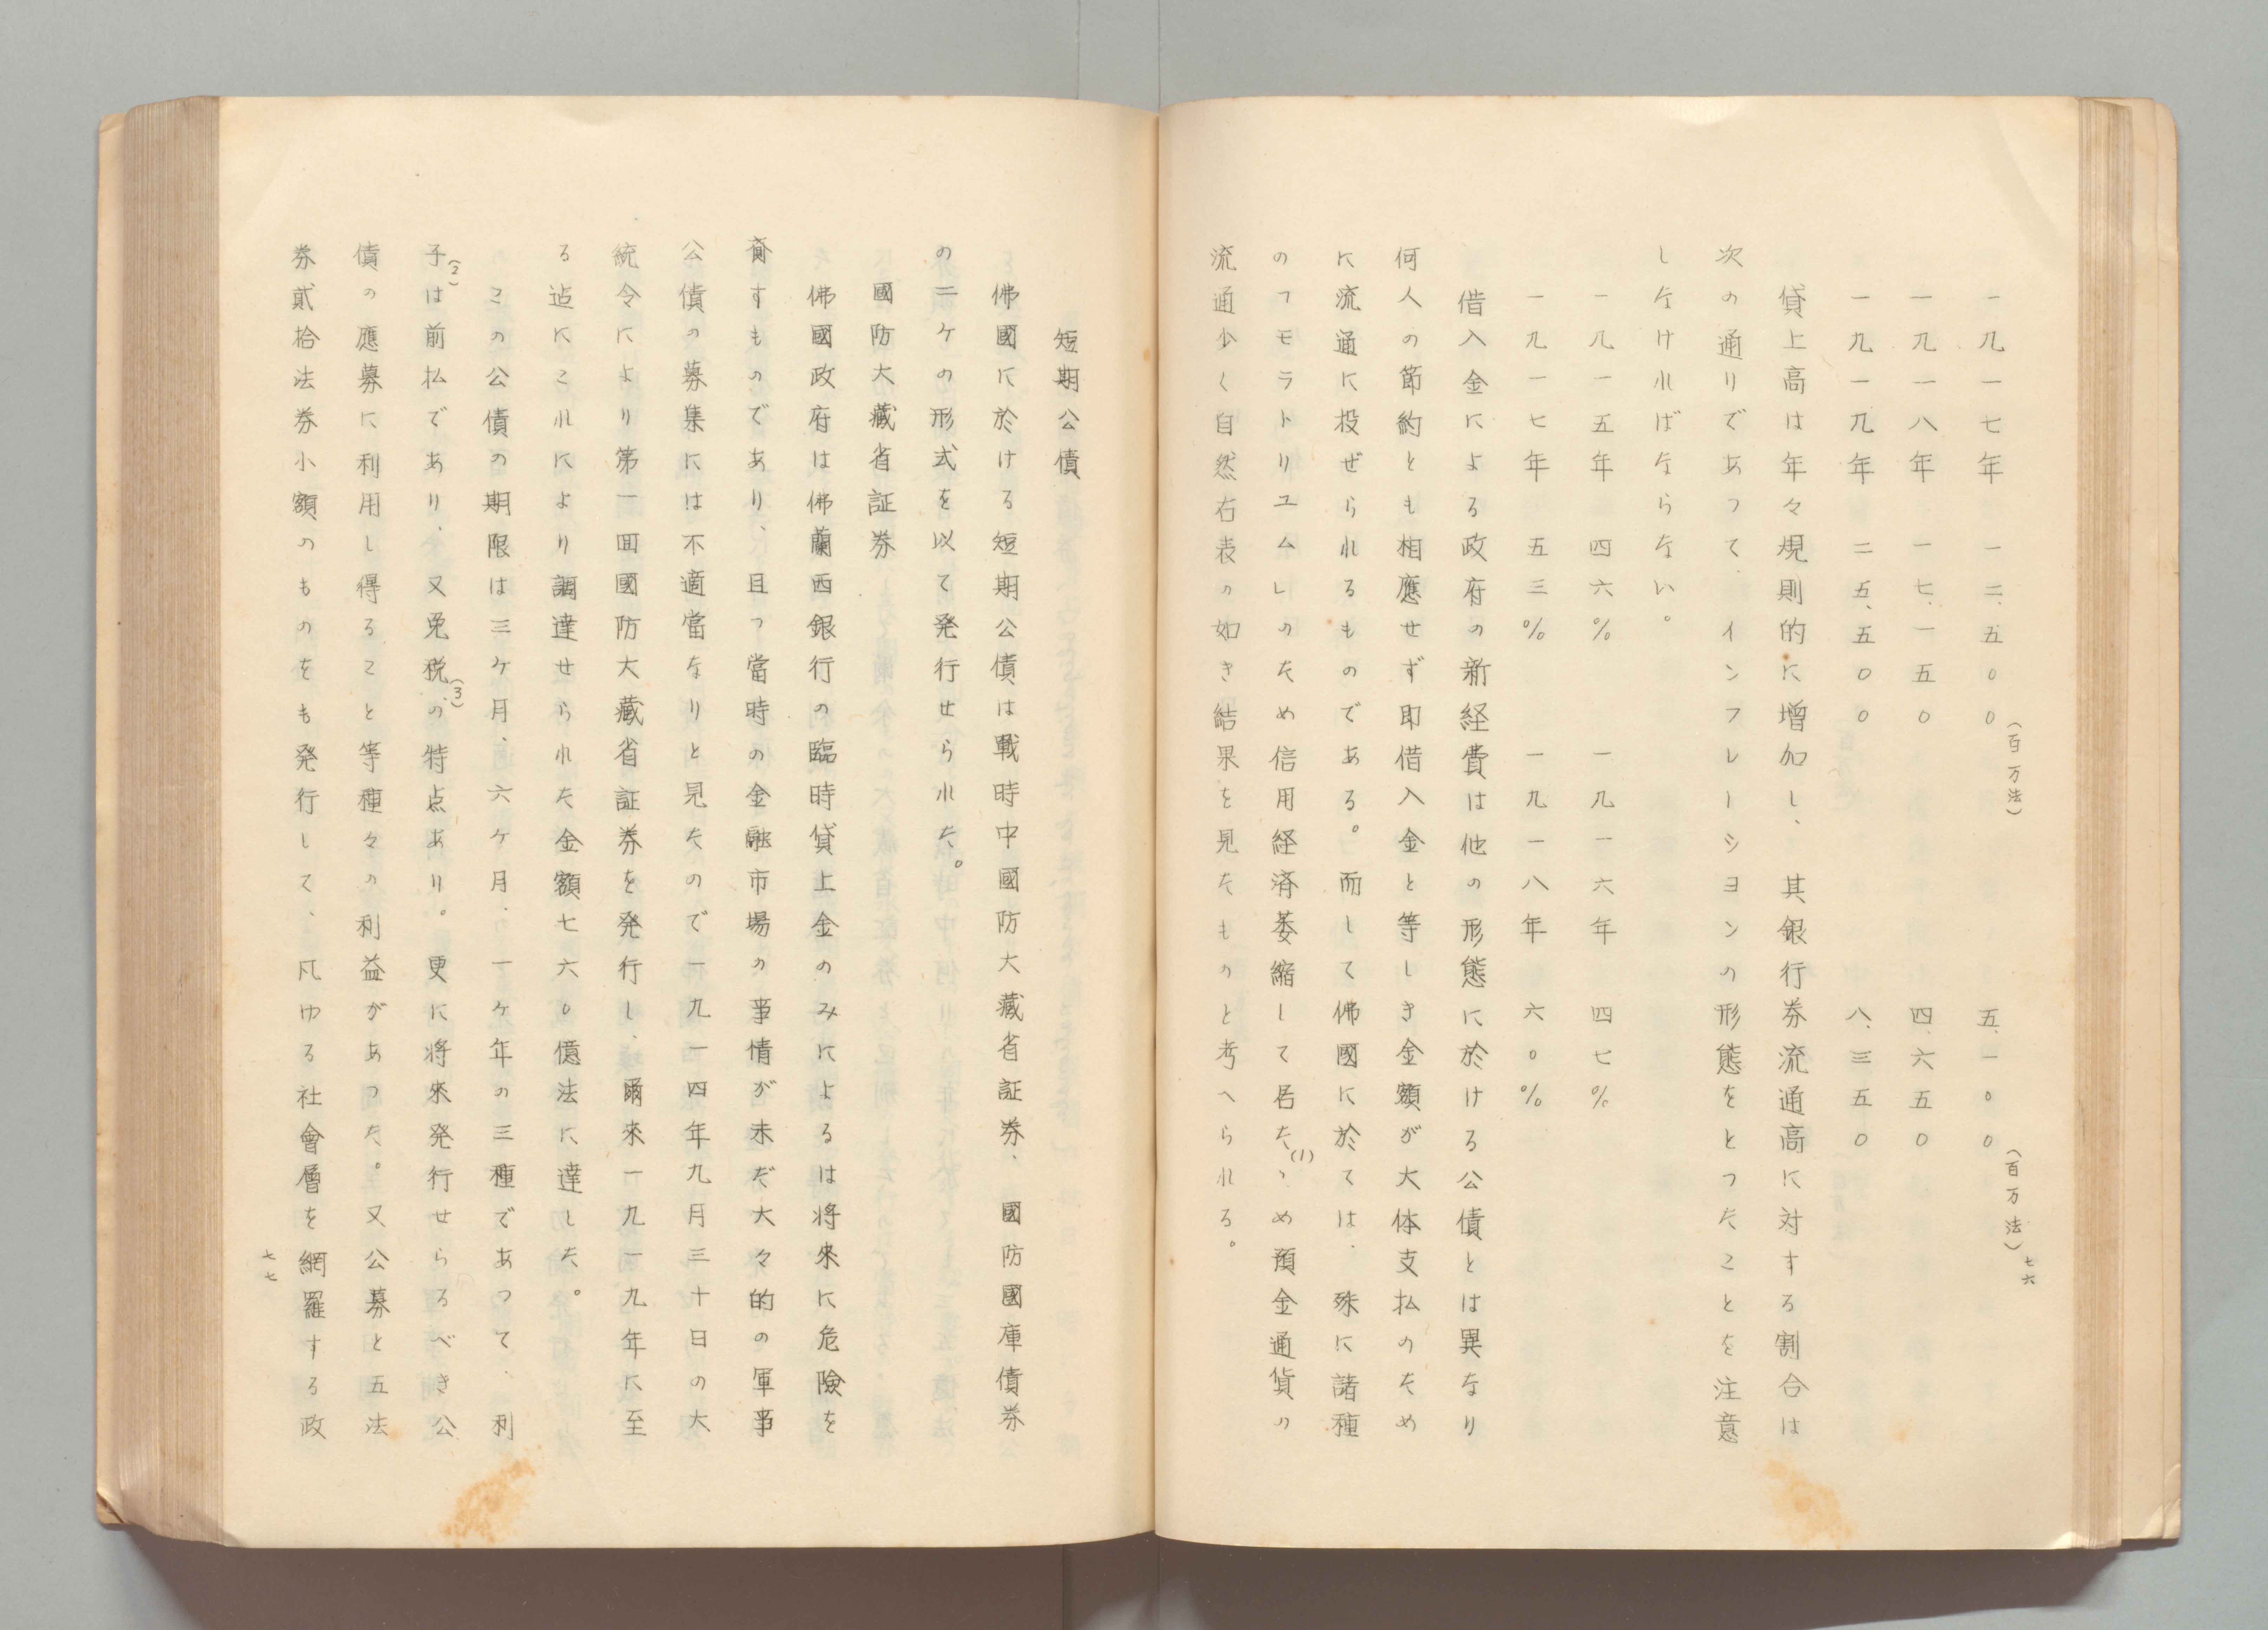 七六
一九一七年　一二、五〇〇（百万法）　五、一〇〇（百万法）
一九一八年　一七、一五〇　四、六五〇
一九一九年　二五、五〇〇　八、三五〇
貸上高は年々規則的に増加し、其銀行券流通高に対する割合は
次の通りであつて、インフレーシヨンの形態をとつたことを注意
しなければならない。
一九一五年　四六％　一九一六年　四七％
一九一七年　五三％　一九一八年　六〇％
借入金による政府の新経費は他の形態に於ける公債とは異なり
何人の節約とも相應せず即借入金と等しき金額が大体支払のため
に流通に投ぜられるものである。而して佛國に於ては、殊に諸種
のフモラトリユムレのため信用経済萎縮して居た(1)ゝめ預金通貨の
流通少く自然右表の如き結果を見たものと考へられる。
短期公債
佛國に於ける短期公債は戰時中國防大藏省証券、國防國庫債券
の二ケの形式を以て発行せられた。
國防大藏省証券
佛國政府は佛蘭西銀行の臨時貸上金のみによるは将來に危險を
齎すものであり、且つ當時の金融市場の事情が未だ大々的の軍事
公債の募集には不適當なりと見たので一九一四年九月三十日の大
統令により第一回國防大藏省証券を発行し、爾來一九一九年に至
る迠にこれにより調達せられた金額七六〇億法に達した。
この公債の期限は三ケ月、六ケ月、一ケ年の三種であつて、利
子(2)は前払であり、又免税(3)の特点あり。更に将來発行せらるべき公
債の應募に利用し得ること等種々の利益があつた。又公募と五法
券貳拾法券小額のものをも発行して、凡ゆる社會層を網羅する政
七七